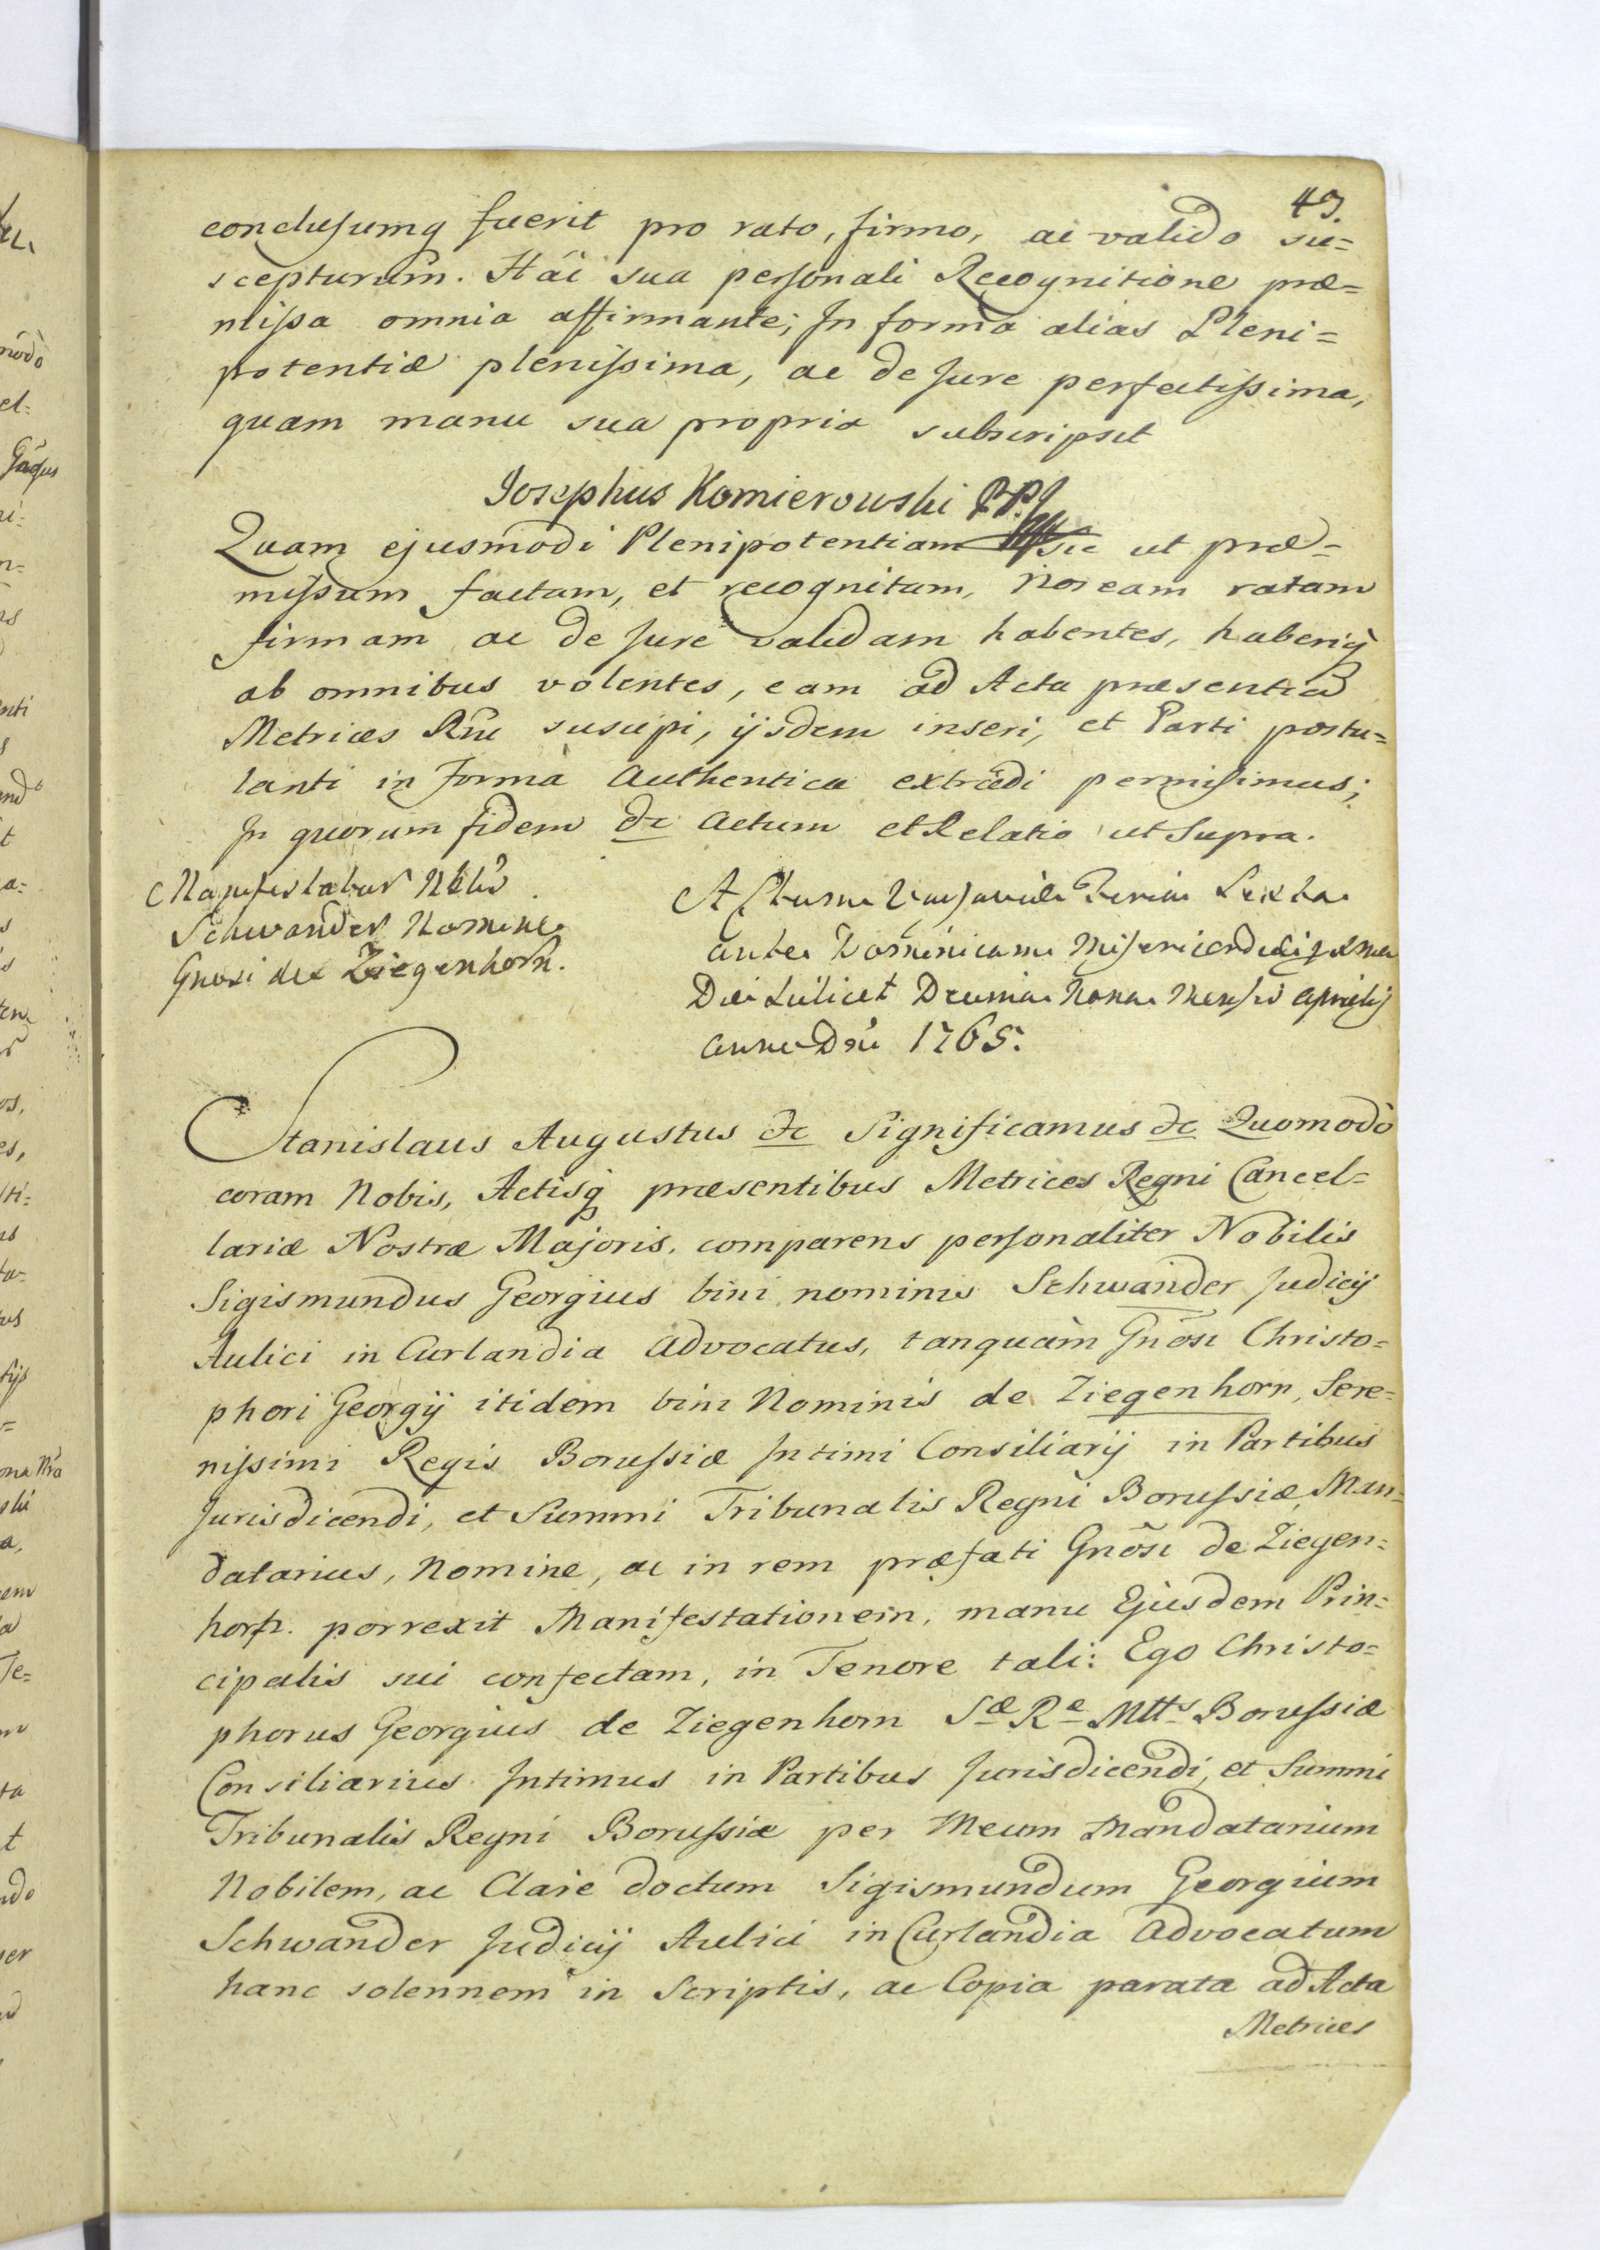 43.
conclusumq fuerit pro rato, firmo, ac valido su=
scepturum. Hâc sua personali Recognitione præ=
missa omnia affirmante; In forma alias Pleni=
potentiæ plenissima, ac de Jure perfectissima,
quam manu sua propria subscripsit
Josephus Komierowski
Quam ejusmodi Plenipotentiam sic ut præ=
missum factam, et recognitam, Nos eam ratam
firmam ac de Jure validam habentes, haberiq
ab omnibus volentes, eam ad Acta præsentia
Metrices Rni suscipi, ijsdem inseri, et Parti postu=
lanti in forma Authentica extradi permisimus;
In quorum fidem &c Actum et Relatio ut Supra.
Manifestatur Nblis
Schwander Nomine
Gnosi de Ziegenhorn.
Actum Varsaviæ Feria Sexta
ante Dominicam Misericordiæ
Die scilicet Decima Nona Mensis Aprilis
Anno Dni 1765.
Stanislaus Augustus &c Significamus &c Quomodò
coram Nobis, Actisq præsentibus Metrices Regni Cancel=
lariæ Nostræ Majoris, comparens personaliter Nobilis
Sigismundus Georgius bini nominis Schwander Judicij
Aulici in Curlandia Advocatus, tanquàm Gnõsi Christo=
phori Georgij itidem bini Nominis de Ziegenhorn, Sere=
nissimi Regis Borussiæ Intimi Consiliarij in Partibus
Jurisdicendi, et Summi Tribunalis Regni Borussiæ, Man=
datarius, Nomine, ac in rem præfati Gnõsi de Ziegen=
horn. porrexit Manifestationem, manu Ejusdem Prin=
cipalis sui confectam, in Tenore tali: Ego Christo=
phorus Georgius de Ziegenhorn Sæ Re Mtts Borussiæ
Consiliarius Intimus in Partibus Jurisdicendi, et Summi
Tribunalis Regni Borussiæ per Meum Mandatarium
Nobilem, ac Clare doctum Sigismundum Georgium
Schwander Judicij Aulici in Curlandia Advocatum
hanc solennem in Scriptis, ac Copia parata ad Acta
Metrices